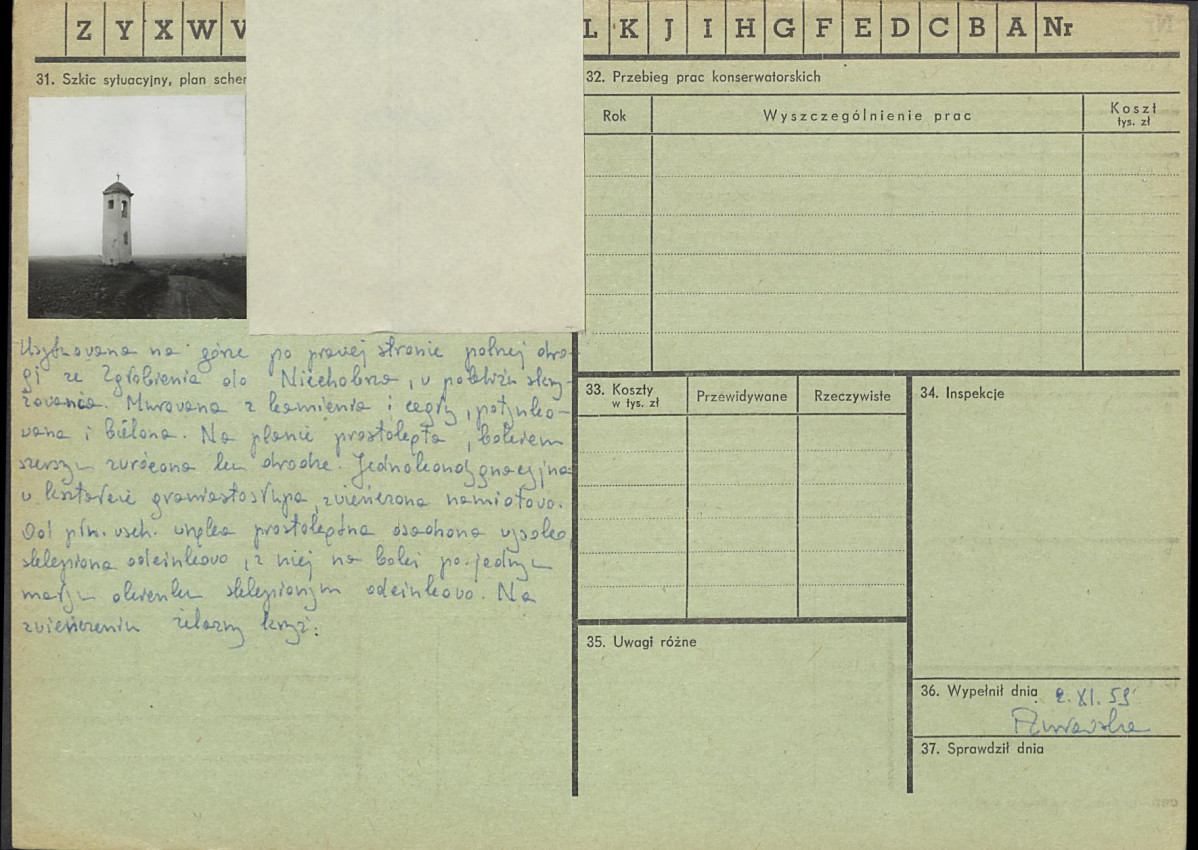 Z Y X W V L K J I H G F E D C B A Nr
31. Szkic sytuacyjny, plan schem
Usytuowana na górze po prawej stronie polnej dro-
gi ze Zgłobienia do Niechobrza, w pobliżu skrzy-
żowania. Murowana z kamienia i cegły, potynko-
wana i bielona. Na planie prostokąta, bokiem
szerszym zwrócona ku drodze. Jednokondygnacyjna
w kształcie graniastosłupa, zwieńczona namiotowo.
Od płn. wsch. wnęka prostokątna osadzona wysoko,
sklepiona odcinkowo, z niej na boki po jednym
małym okienku sklepionym odcinkowo. Na
zwieńczeniu żelazny krzyż.
32. Przebieg prac konserwatorskich
Rok Wyszczególnienie prac Koszt
tys. zł
33. Koszty
w tys. zł
Przewidywane Rzeczywiste
34. Inspekcje
35. Uwagi różne
36. Wypełnił dnia 2. XI. 59
37. Sprawdził dnia